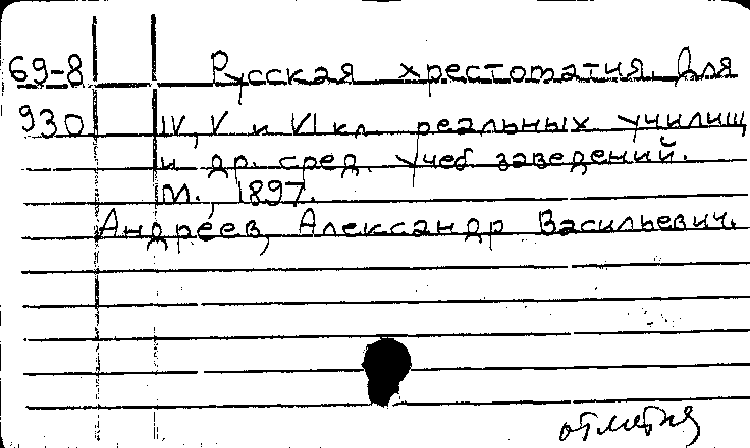 69-8 Русская хрестоматия. Для
930 IV, V и VI кл. реальных училищ
и др. сред. учеб. заведений.
М., 1897.
Андреев, Александр Васильевич.
отметка